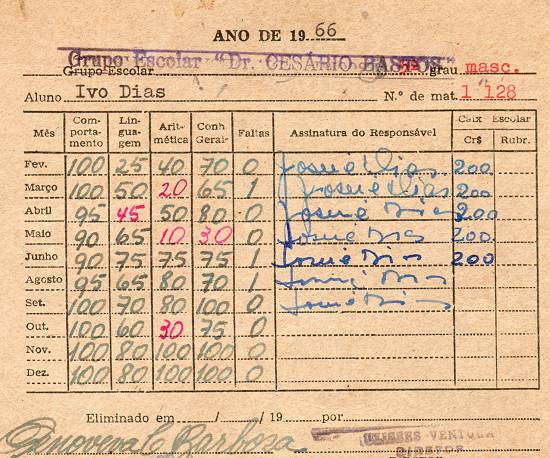 ANO DE 19 66
Grupo Escolar "Dr. CESÁRIO BASTOS"
Grupo Escolar grau masc.
Aluno Ivo Dias N.º de mat. 1 128
Mês Comportamento Linguagem Aritmética Conh Gerais Faltas Assinatura do Responsável Caix Escolar Cr$ Rubr.
Fev. 100 25 40 70 0 Josué Dias 200
Março 100 50 20 65 1 Josué Dias 200
Abril 95 45 50 80 0 Josué Dias 200
Maio 90 65 10 30 0 Josué Dias 200
Junho 90 75 75 75 1 Josué Dias 200
Agosto 95 65 80 70 1 Josué Dias
Set. 100 70 80 100 0 Josué Dias
Out. 100 60 30 75 0
Nov. 100 80 100 100 0
Dez. 100 80 100 100 0
Eliminado em / / 19 por
Genoveva C Barbosa
ULISSES VENTURA
DIRETOR